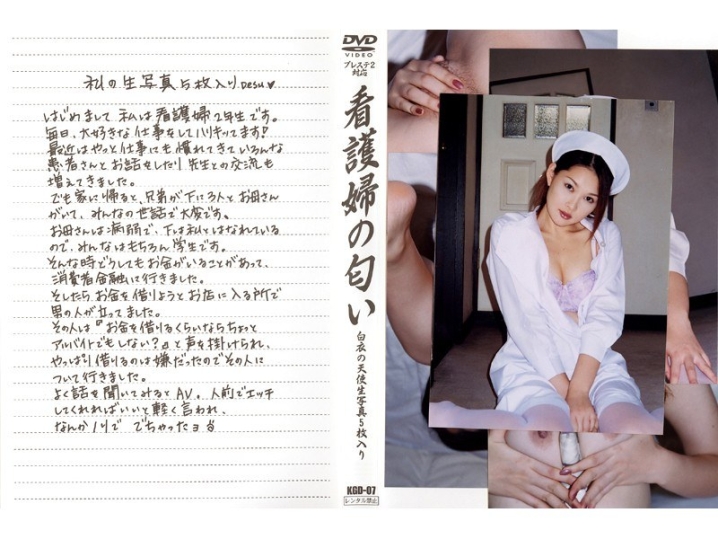 私の生写真5枚入りDesu♥
はじめまして 私は看護婦2年生です。
毎日、大好きな仕事をしてハリキッてます!
最近はやっと仕事にも慣れてきていろんな
患者さんとお話をしたり先生との交流も
増えてきました。
でも家に帰ると、兄弟が下に3人とお母さん
がいて、みんなの世話で大変です。
お母さんは病弱で、下は私とはなれている
ので、みんなはもちろん学生です。
そんな時どうしてもお金がいることがあって、
消費者金融に行きました。
そしたらお金を借りようとお店に入る所で
男の人が立ってました。
その人は『お金を借りるくらいならちょっと
アルバイトでもしない?』と声を掛けられ、
やっぱり借りるのは嫌だったのでその人に
ついて行きました。
よく話を聞いてみるとAV。人前でエッチ
してくれればいいと軽く言われ、
なんかノリで でちゃったヨ
DVD
VIDEO
プレステ2
対応
看護婦の匂い
白衣の天使生写真5枚入り
KGD-07
レンタル禁止